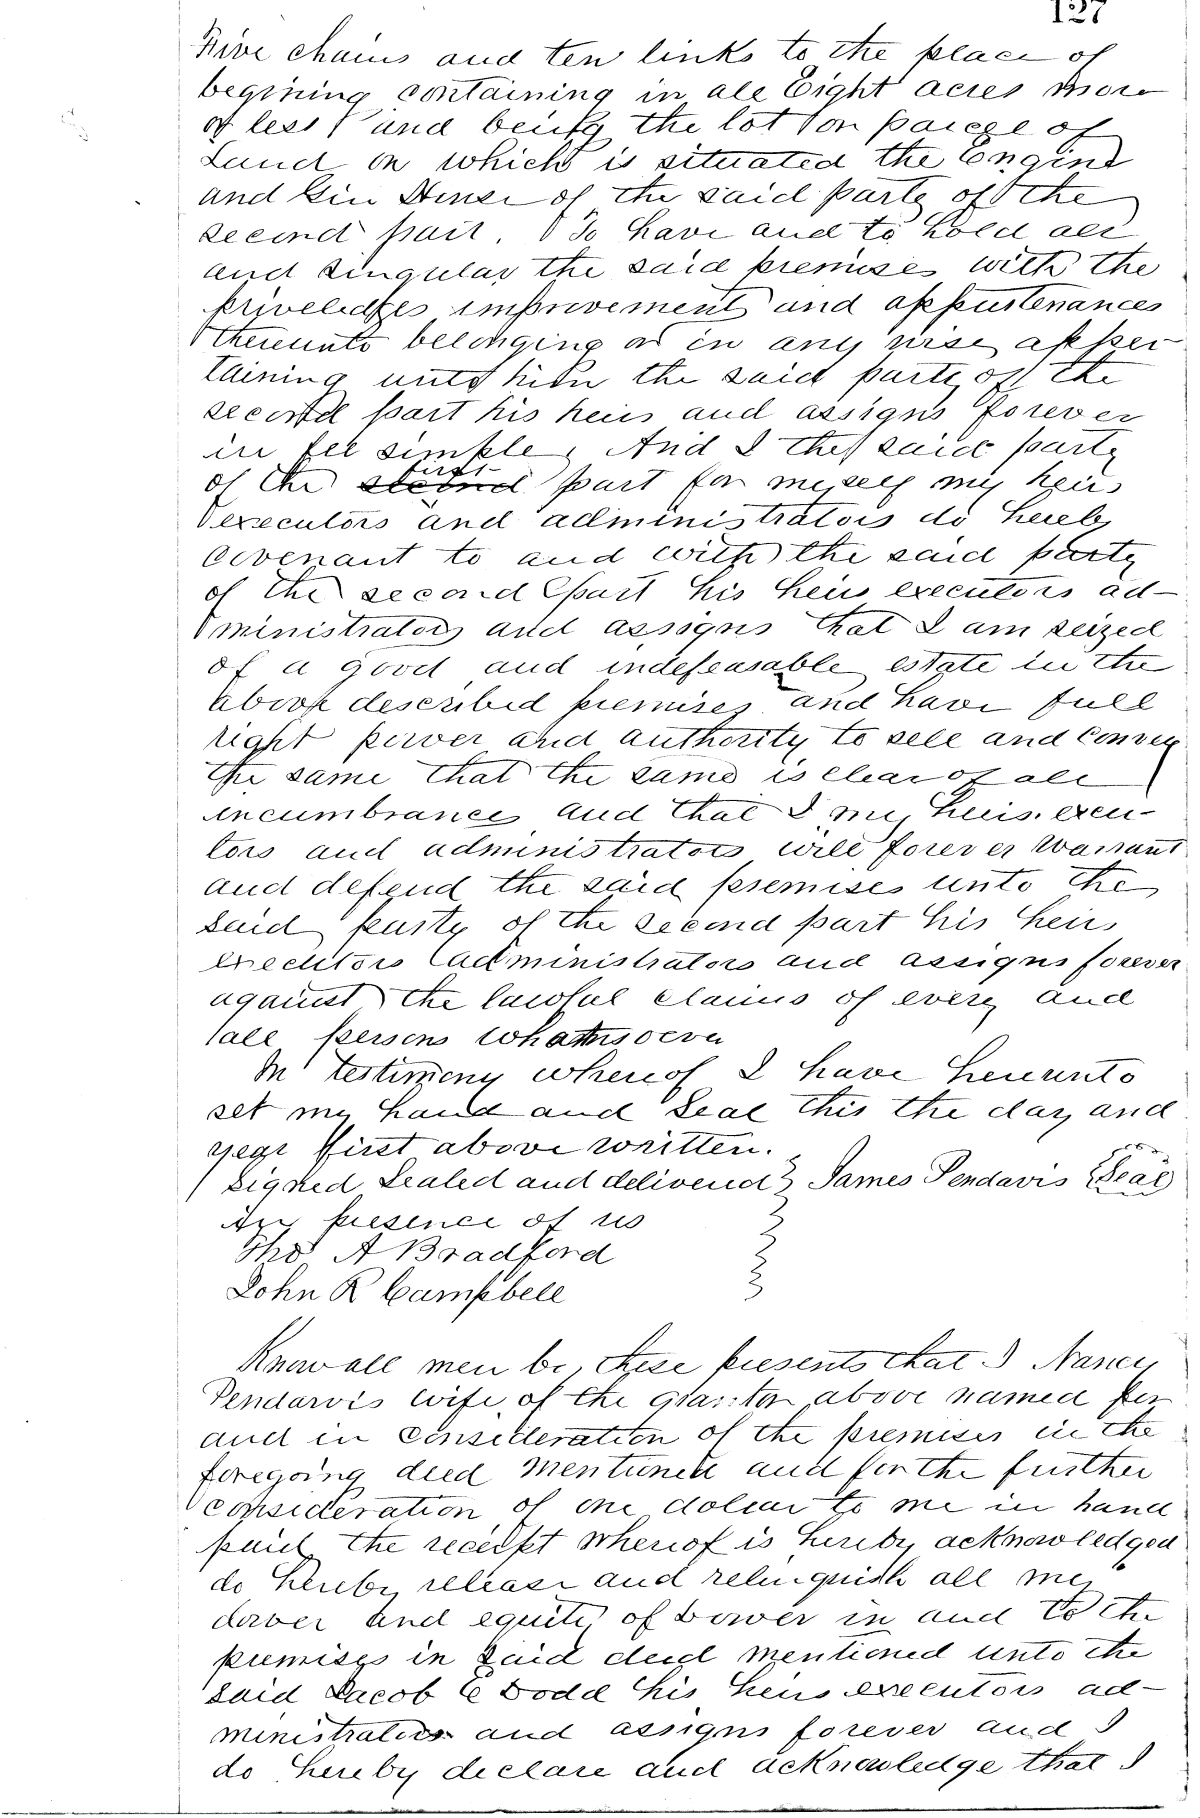 127
Five chains and ten links to the place of
begining containing in all Eight acres more
or less and being the lot or parcel of
Land on which is situated the Engine
and Gin House of the said party of the
second part. To have and to hold all
and singular the said premises with the
priveledges improvements and appurtenances
thereunto belonging or in any wise apper
taining unto him the said party of the
second part his heirs and assigns forever
in fee simple, And I the said party
of the first part for myself my heirs
executors and administrators do hereby
covenant to and with the said party
of the second part his heirs executors ad-
ministrators and assigns that I am seized
of a good and indefeasable estate in the
above described premises and have full
right power and authority to sell and convey
the same that the same is clear of all
incumbrances and that I my heirs. exeu-
tors and administrators will forever warrant
and defend the said premises unto the
said party of the second part his heirs
executors administrators and assigns forever
against the lawful claims of every and
all persons whatnsoever
In testimony whereof I have hereunto
set my hand and seal this the day and
year first above written.
Signed Sealed and delivered } James Pendavis {Seal}
in presence of us
Tho A Bradford
John R Campbell
Know all men by these presents that I Nancy
Pendarvis wife of the grantor above named for
and in consideration of the premises in the
foregoing deed mentioned and for the further
consideration of one dollar to me in hand
paid the receipt whereof is hereby acknowledged
do hereby release and relinquish all my
dower and equity of Dower in and to the
premises in said deed mentioned unto the
said Jacob C Dodd his heirs executors ad-
ministrators and assigns forever and I
do hereby declare and acknowledge that I